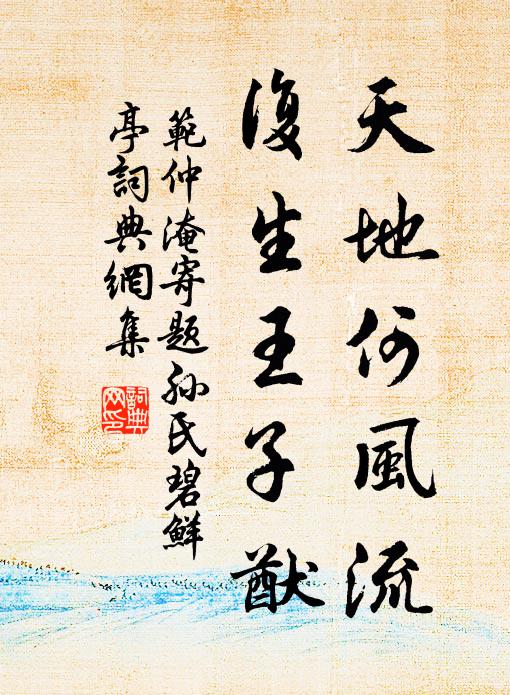 天地何風流
復生王子猷
範仲淹寄題孙氏碧鮮
亭詞典網集
詞典
网印